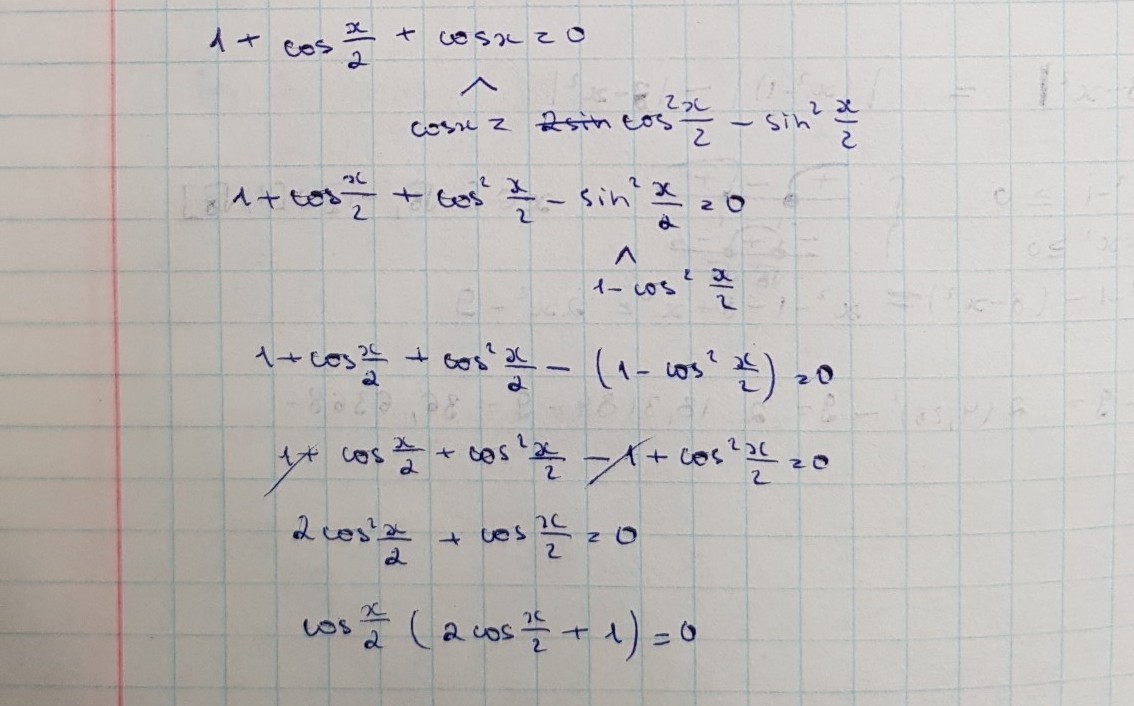 1 + cos x/2 + cosx = 0
^
cosx = cos² x/2 − sin² x/2
1 + cos x/2 + cos² x/2 − sin² x/2 = 0
^
1 − cos² x/2
1 + cos x/2 + cos² x/2 − (1 − cos² x/2) = 0
1 + cos x/2 + cos² x/2 − 1 + cos² x/2 = 0
2 cos² x/2 + cos x/2 = 0
cos x/2 (2 cos x/2 + 1) = 0